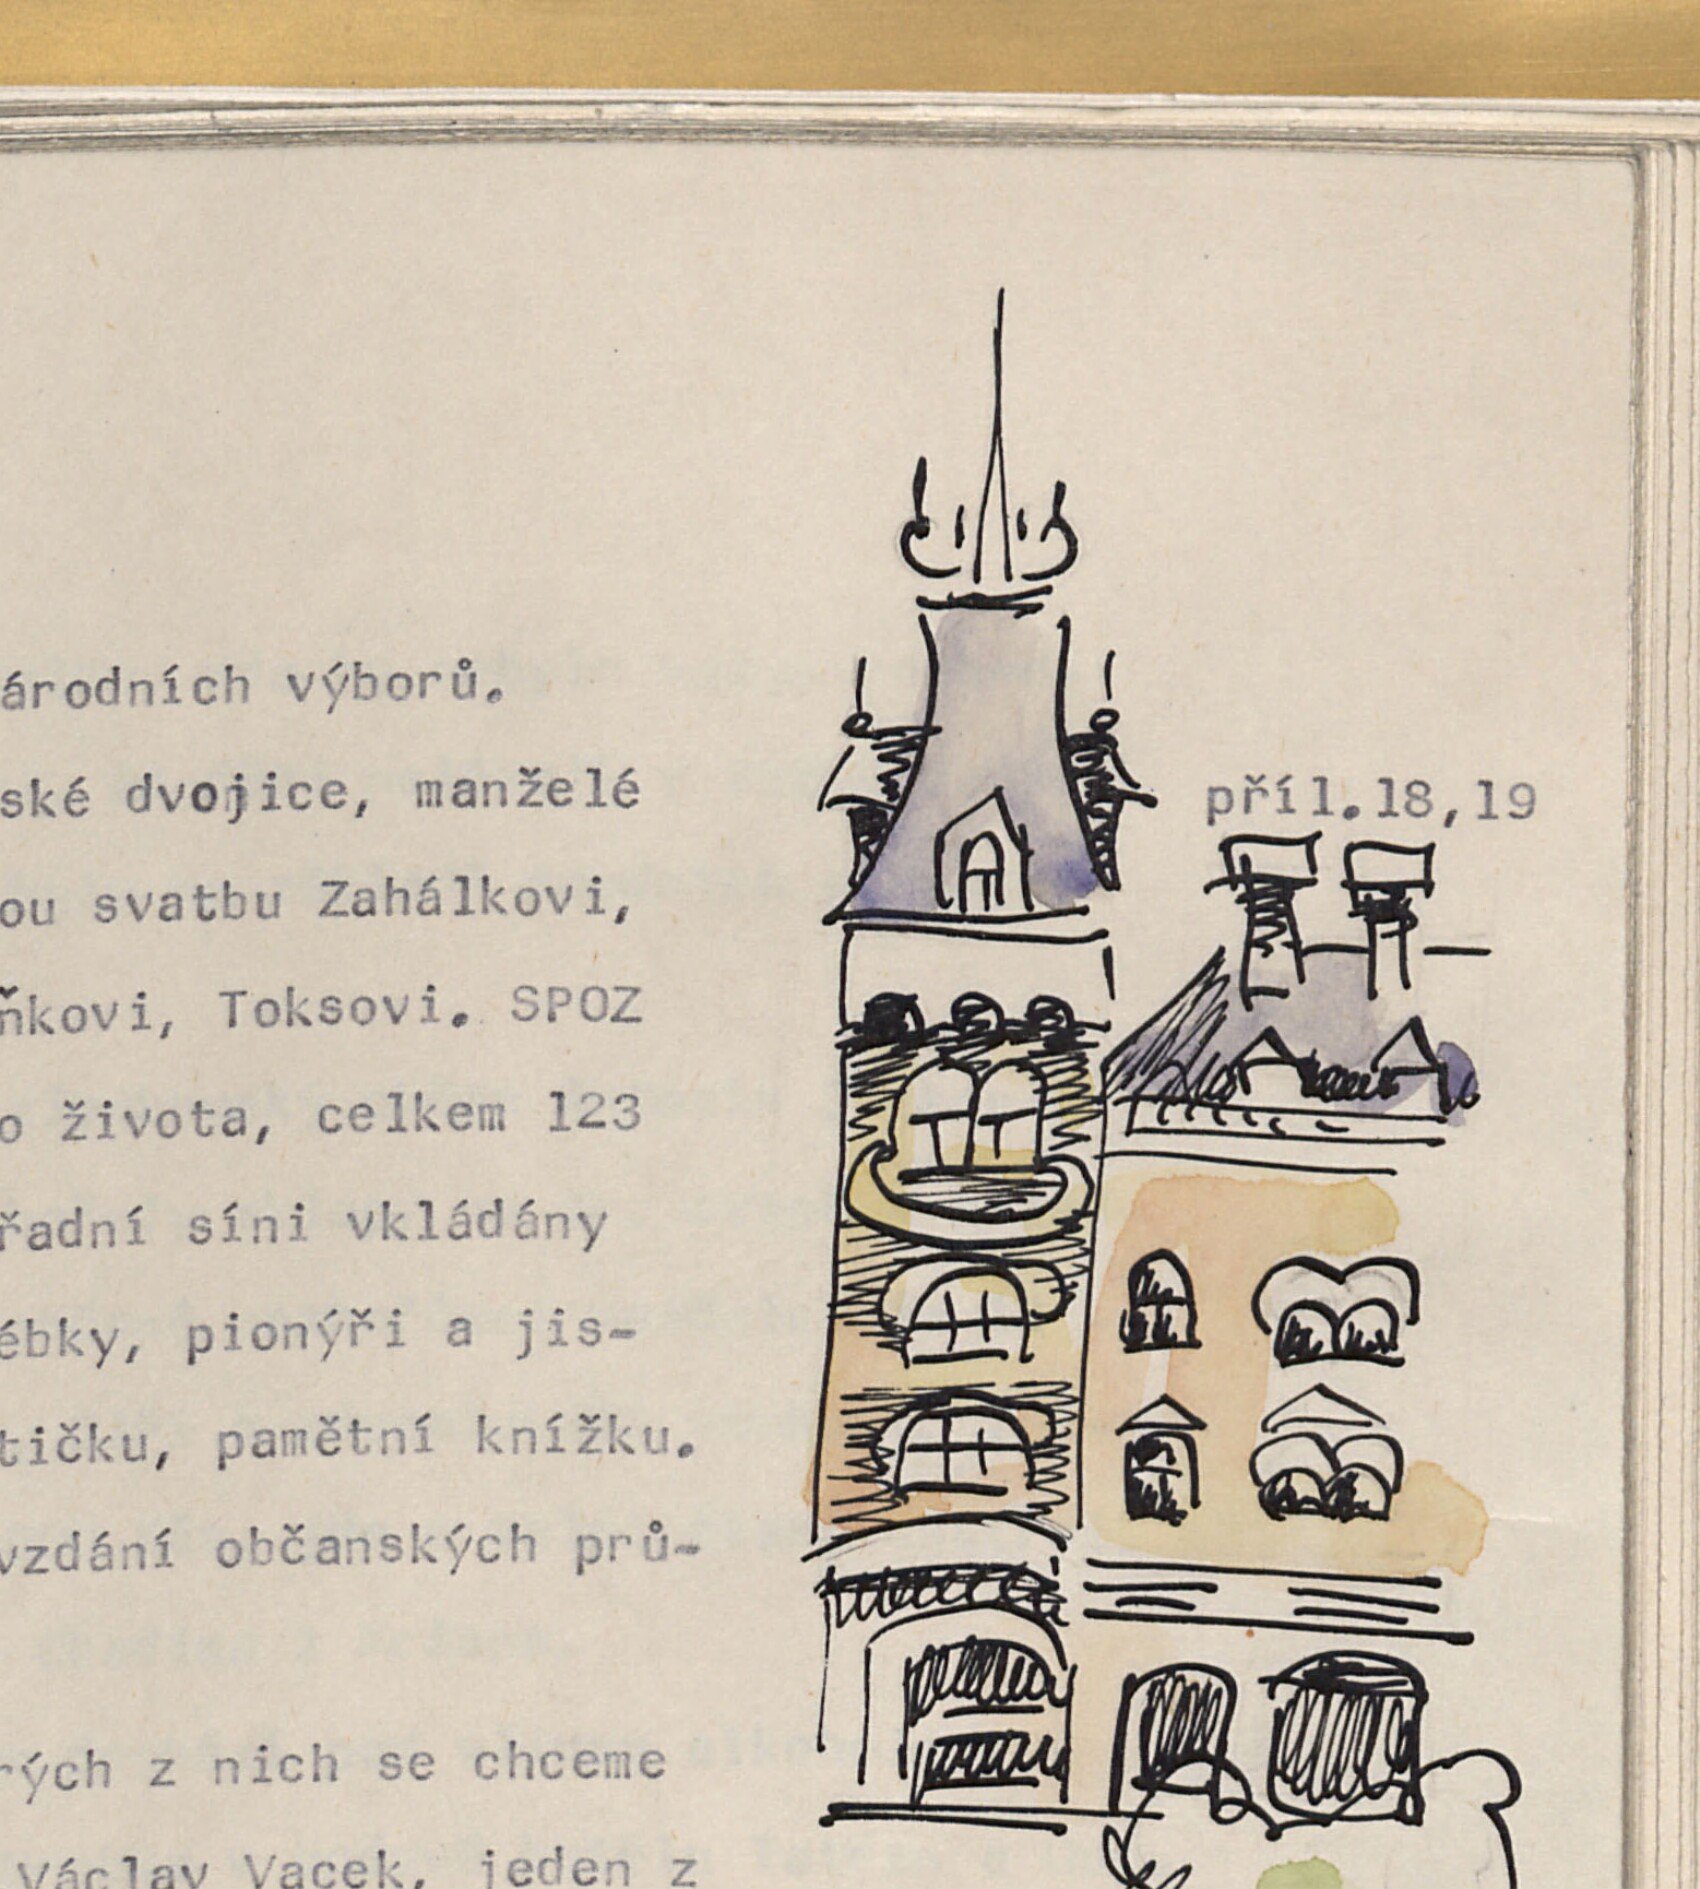 árodních výborů.
ské dvojice, manželé
příl.18,19
ou svatbu Zahálkovi,
ňkovi, Toksovi. SPOZ
o života, celkem 123
řadní síni vkládány
ébky, pionýři a jis-
tičku, pamětní knížku.
vzdání občanských prů-
rých z nich se chceme
Václav Vacek, jeden z